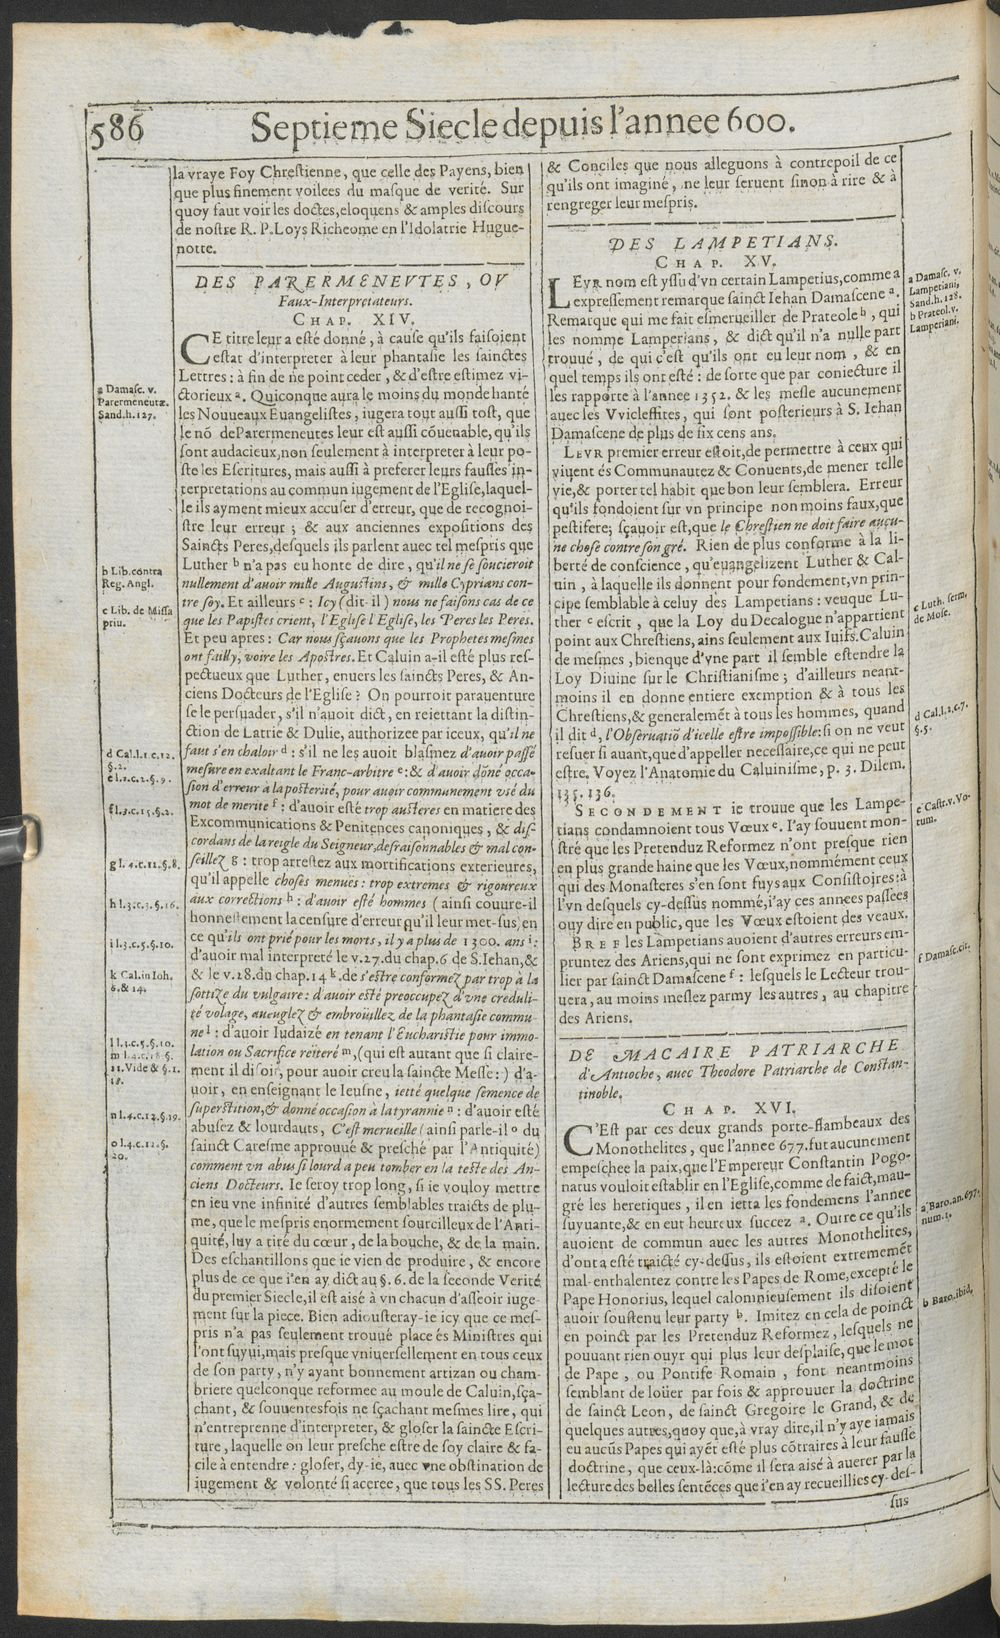 586
Septieme Siecle depuis l'annee 600.
la vraye Foy Chrestienne, que celle des Payens, bien
que plus finement voilees du masque de verité. Sur
quoy faut voir les doctes, eloquens & amples discours
de nostre R. P. Loys Richeome en l'Idolatrie Hugue-
notte.
DES PARERMENEVTES, OV
Faux-Interpretateurs.
CHAP. XIV.
CE titre leur a esté donné, à cause qu'ils faisoient
estat d'interpreter à leur phantasie les sainctes
Lettres: à fin de ne point ceder, & d'estre estimez vi-
ctorieux a. Quiconque aura le moins du monde hanté
les Nouueaux Euangelistes, iugera tout aussi tost, que
le nō de Parermeneutes leur est aussi cōuenable, qu'ils
sont audacieux, non seulement à interpreter à leur po-
ste les Escritures, mais aussi à preferer leurs fausses in-
terpretations au commun iugement de l'Eglise, laquel-
le ils ayment mieux accuser d'erreur, que de recognoi-
stre leur erreur; & aux anciennes expositions des
Saincts Peres, desquels ils parlent auec tel mespris que
Luther b n'a pas eu honte de dire, qu'il ne se soucieroit
nullement d'auoir mille Augustins, & mille Cyprians con-
tre soy. Et ailleurs c: Icy (dit-il) nous ne faisons cas de ce
que les Papistes crient, l'Eglise l'Eglise, les Peres les Peres.
Et peu apres: Car nous sçauons que les Prophetes mesmes
ont failly, voire les Apostres. Et Caluin a-il esté plus res-
pectueux que Luther, enuers les saincts Peres, & An-
ciens Docteurs de l'Eglise? On pourroit parauenture
se le persuader, s'il n'auoit dict, en reiettant la distin-
ction de Latrie & Dulie, authorizee par iceux, qu'il ne
faut s'en chaloir d: s'il ne les auoit blasmez d'auoir passé
mesure en exaltant le Franc-arbitre e: & d'auoir dōné occa-
sion d'erreur à la posterité, pour auoir communement vsé du
mot de merite f: d'auoir esté trop austeres en matiere des
Excommunications & Penitences canoniques, & dis-
cordans de la reigle du Seigneur, desraisonnables & mal con-
seillez g: trop arrestez aux mortifications exterieures,
qu'il appelle choses menuës: trop extremes & rigoureux
aux corrections h: d'auoir esté hommes (ainsi couure-il
honnestement la censure d'erreur qu'il leur met-sus) en
ce qu'ils ont prié pour les morts, il y a plus de 1300. ans i:
d'auoir mal interpreté le v. 27. du chap. 6 de S. Iehan, &
& le v. 18. du chap. 14 k. de s'estre conformez par trop à la
sottize du vulgaire: d'auoir esté preoccupez d'vne creduli-
té volage, aueuglez & embroüillez de la phantasie commu-
ne l: d'auoir Iudaizé en tenant l'Eucharistie pour immo-
lation ou Sacrifice reiteré m, (qui est autant que si claire-
ment il disoit, pour auoir creu la saincte Messe:) d'a-
uoir, en enseignant le Ieusne, ietté quelque semence de
superstition, & donné occasion à la tyrannie n: d'auoir esté
abusez & lourdauts, C'est merueille (ainsi parle-il o du
sainct Caresme approuué & presché par l'Antiquité)
comment vn abus si lourd a peu tomber en la teste des An-
ciens Docteurs. Ie seroy trop long, si ie vouloy mettre
en ieu vne infinité d'autres semblables traicts de plu-
me, que le mespris enormement sourcilleux de l'Anti-
quité, luy a tiré du cœur, de la bouche, & de la main.
Des eschantillons que ie vien de produire, & encore
plus de ce que i'en ay dict au §. 6. de la seconde Verité
du premier Siecle, il est aisé à vn chacun d'asseoir iuge-
ment sur la piece. Bien adiousteray-ie icy que ce mes-
pris n'a pas seulement trouué place és Ministres qui
l'ont suyui, mais presque vniuersellement en tous ceux
de son party, n'y ayant bonnement artizan ou cham-
briere quelconque reformee au moule de Caluin, sça-
chant, & souuentesfois ne sçachant mesmes lire, qui
n'entreprenne d'interpreter, & gloser la saincte Escri-
ture, laquelle on leur presche estre de soy claire & fa-
cile à entendre: gloser, dy-ie, auec vne obstination de
iugement & volonté si aceree, que tous les SS. Peres
a Damasc. v.
Parermeneutæ.
Sand. h. 127.
b Lib. contra
Reg. Angl.
c Lib. de Missa
priu.
d Cal. l. 1. c. 12.
§. 2.
e l. 2. c. 2. §. 9.
f l. 3. c. 15. §. 2.
g l. 4. c. 12. §. 8.
h l. 3. c. 3. §. 16.
i l. 3. c. 5. §. 10.
k Cal. in Ioh.
6. & 14.
l l. 3. c. 5. §. 10.
m l. 4. c. 18. §.
11. Vide & §. 1.
18.
n l. 4. c. 12. §. 19.
o l. 4. c. 12. §.
20.
& Conciles que nous alleguons à contrepoil de ce
qu'ils ont imaginé, ne leur seruent sinon à rire & à
rengreger leur mespris.
DES LAMPETIANS.
CHAP. XV.
LEVR nom est yssu d'vn certain Lampetius, comme a
expressement remarque sainct Iehan Damascene a.
Remarque qui me fait esmerueiller de Prateole b, qui
les nomme Lamperians, & dict qu'il n'a nulle part
trouué, de qui c'est qu'ils ont eu leur nom, & en
quel temps ils ont esté: de sorte que par coniecture il
les rapporte à l'annee 1352. & les mesle aucunement
auec les Vvicleffites, qui sont posterieurs à S. Iehan
Damascene de plus de six cens ans.
LEVR premier erreur estoit, de permettre à ceux qui
viuent és Communautez & Conuents, de mener telle
vie, & porter tel habit que bon leur semblera. Erreur
qu'ils fondoient sur vn principe non moins faux, que
pestifere; sçauoir est, que le Chrestien ne doit faire aucu-
ne chose contre son gré. Rien de plus conforme à la li-
berté de conscience, qu'euangelizent Luther & Cal-
uin, à laquelle ils donnent pour fondement, vn prin-
cipe semblable à celuy des Lampetians: veuque Lu-
ther c escrit, que la Loy du Decalogue n'appartient
point aux Chrestiens, ains seulement aux Iuifs. Caluin
de mesmes, bien que d'vne part il semble estendre la
Loy Diuine sur le Christianisme; d'ailleurs neant-
moins il en donne entiere exemption & à tous les
Chrestiens, & generalemēt à tous les hommes, quand
il dit d, l'Obseruatiō d'icelle estre impossible: si on ne veut
resuer si auant, que d'appeller necessaire, ce qui ne peut
estre. Voyez l'Anatomie du Caluinisme, p. 3. Dilem.
135. 136.
SECONDEMENT ie trouue que les Lampe-
tians condamnoient tous Vœux e. I'ay souuent mon-
stré que les Pretenduz Reformez n'ont presque rien
en plus grande haine que les Vœux, nommément ceux
qui des Monasteres s'en sont fuys aux Consistoires: à
l'vn desquels cy-dessus nommé, i'ay ces annees passees
ouy dire en public, que les Vœux estoient des veaux.
BREF les Lampetians auoient d'autres erreurs em-
pruntez des Ariens, qui ne sont exprimez en particu-
lier par sainct Damascene f: lesquels le Lecteur trou-
uera, au moins meslez parmy les autres, au chapitre
des Ariens.
DE MACAIRE PATRIARCHE
d'Antioche, auec Theodore Patriarche de Constan-
tinoble.
CHAP. XVI.
C'Est par ces deux grands porte-flambeaux des
Monothelites, que l'annee 677. fut aucunement
empeschee la paix, que l'Empereur Constantin Pogo-
natus vouloit establir en l'Eglise, comme de faict, mau-
gré les heretiques, il en ietta les fondemens l'annee
suyuante, & en eut heureux succez a. Outre ce qu'ils
auoient de commun auec les autres Monothelites,
d'ont a esté traicté cy-dessus, ils estoient extrememēt
mal-enthalentez contre les Papes de Rome, excepté le
Pape Honorius, lequel calomnieusement ils disoient
auoir soustenu leur party b. Imitez en cela de poinct
en poinct par les Pretenduz Reformez, lesquels ne
pouuant rien ouyr qui plus leur desplaise, que le mot
de Pape, ou Pontife Romain, font neantmoins
semblant de loüer par fois & approuuer la doctrine
de sainct Leon, de sainct Gregoire le Grand, & de
quelques autres, quoy que, à vray dire, il n'y aye iamais
eu aucūs Papes qui ayēt esté plus cōtraires à leur fausse
doctrine, que ceux-là: cōme il sera aisé à auerer par la
lecture des belles sentēces que i'en ay recueillies cy-des-
sus
a Damasc. v.
Lampetiani,
Sand. h. 128.
b Prateol. v.
Lamperiani.
c Luth. serm.
de Mose.
d Cal. l. 2. c. 7.
§. 5.
e Castr. v. Vo-
tum.
f Damasc. cit.
a Baro. an. 677.
num. 1.
b Baro. ibid.